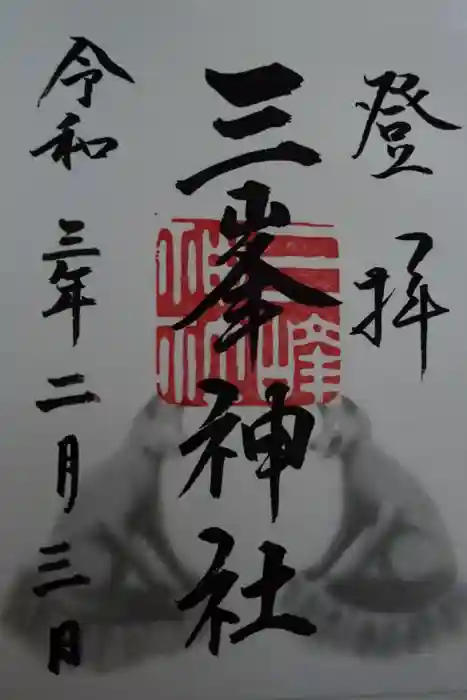 登拝
三峯神社
令和三年二月三日